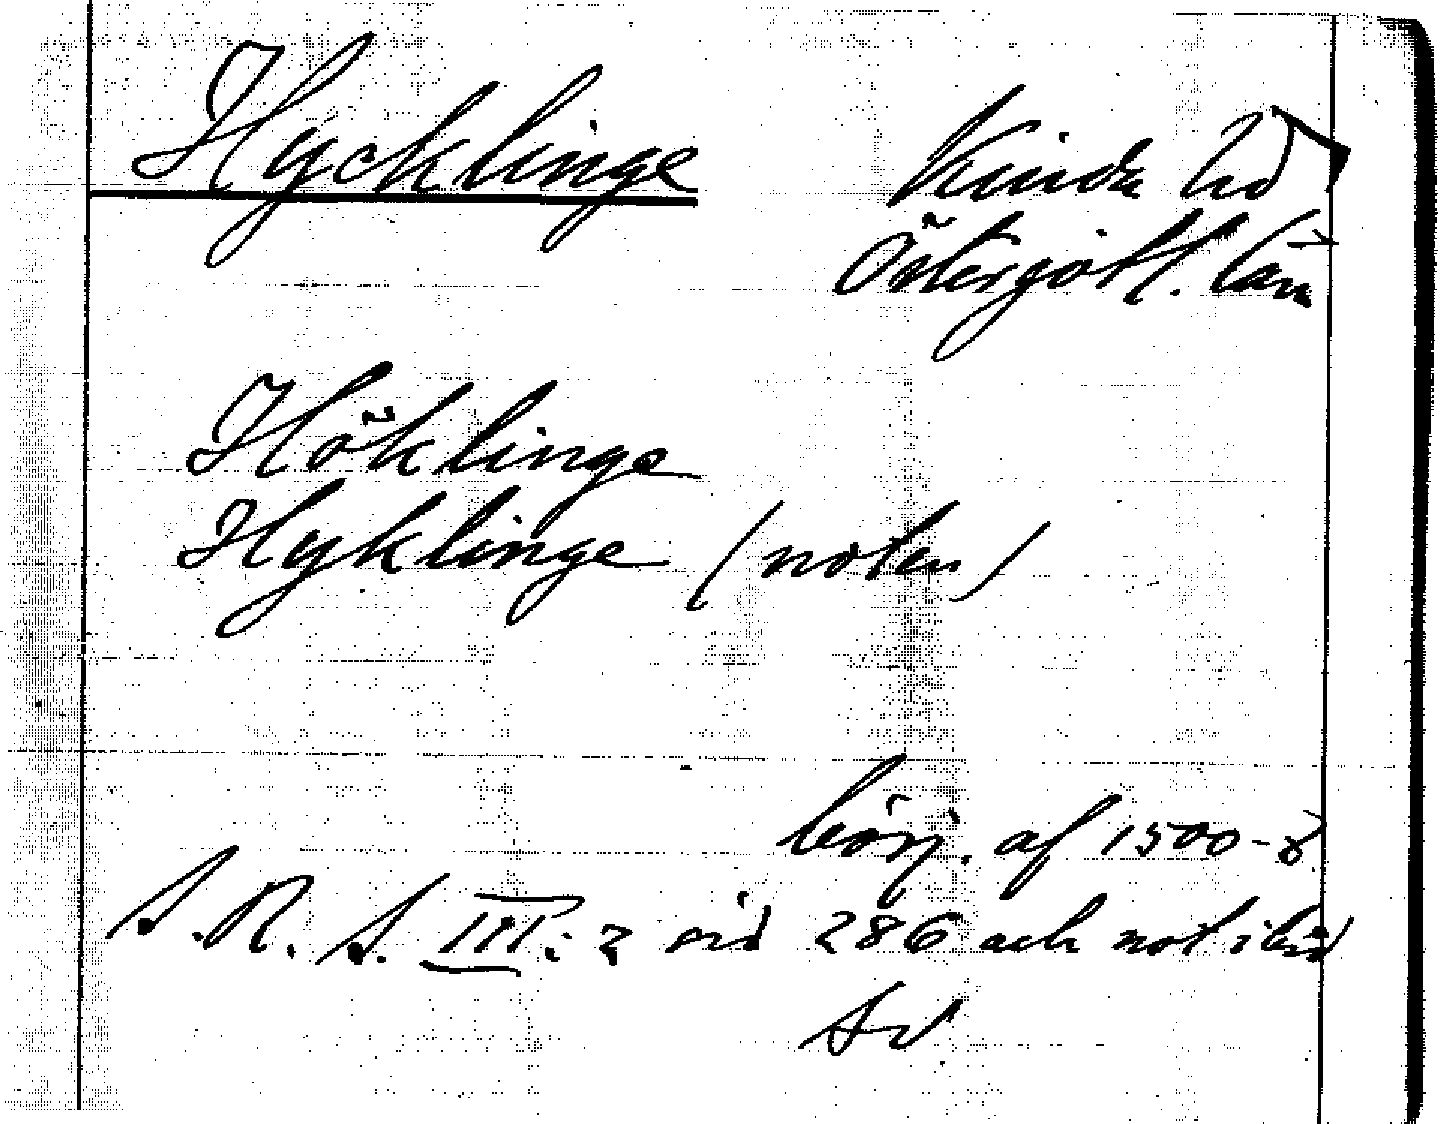 Hycklinge
Kinda hd
Östergötl. län
Höklinge
Hyklinge (noten)
börj. af 1500-t
S. R. S. III: 2 sid 286 och not ibid